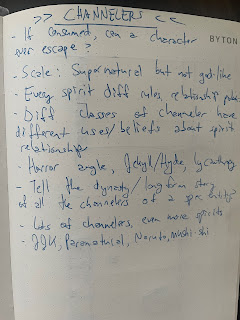 >> CHANNELERS <<
- If consumed, can a character
ever escape?
BYTON
- Scale: Supernatural but not godlike
- Every spirit diff rules, relationship, power
- Diff classes of channeler have
different uses/beliefs about spirit
relationships
- Horror angle, Jekyll/Hyde, lycanthropy
- Tell the dynasty/longform story
of all the channelers of a spec entity?
- Lots of channelers, even more spirits
- JJK, Paranatural, Naruto, Mushi-shi